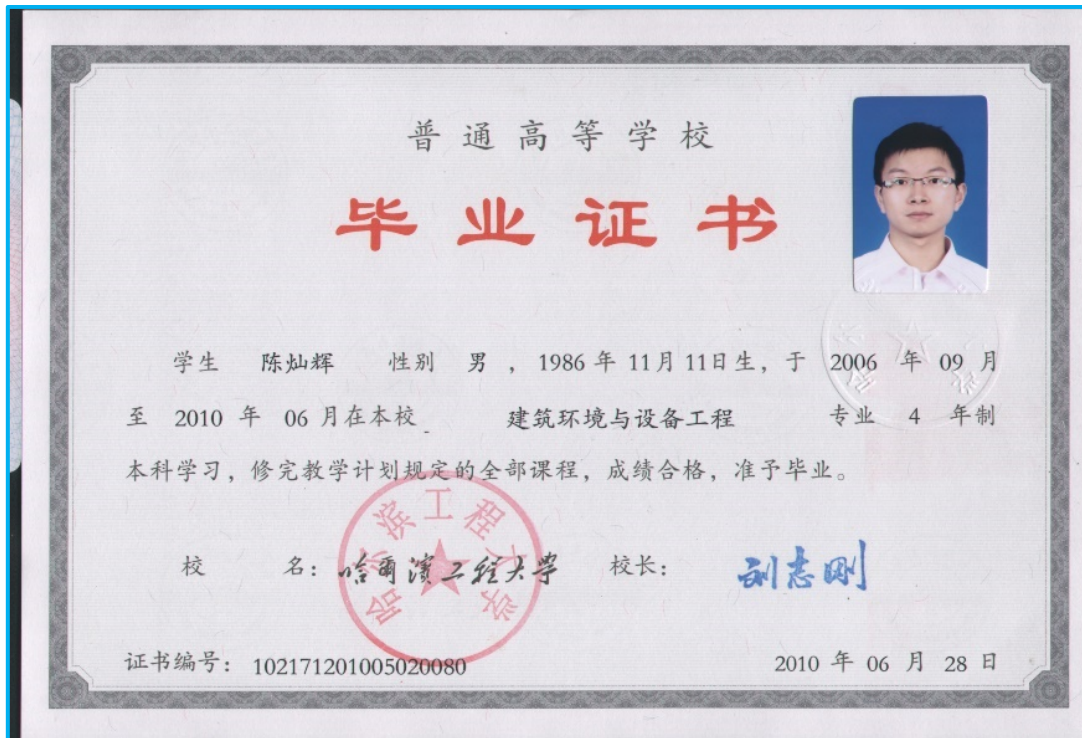 普通高等学校
毕业证书
学生 陈灿辉 性别 男 ，1986 年 11月 11日生，于 2006 年 09 月
至 2010 年 06 月在本校 建筑环境与设备工程 专业 4 年制
本科学习，修完教学计划规定的全部课程，成绩合格，准予毕业。
校 名：哈爾濱工程大学 校长： 刘志刚
哈尔滨工程大学
证书编号：102171201005020080 2010 年 06 月 28 日